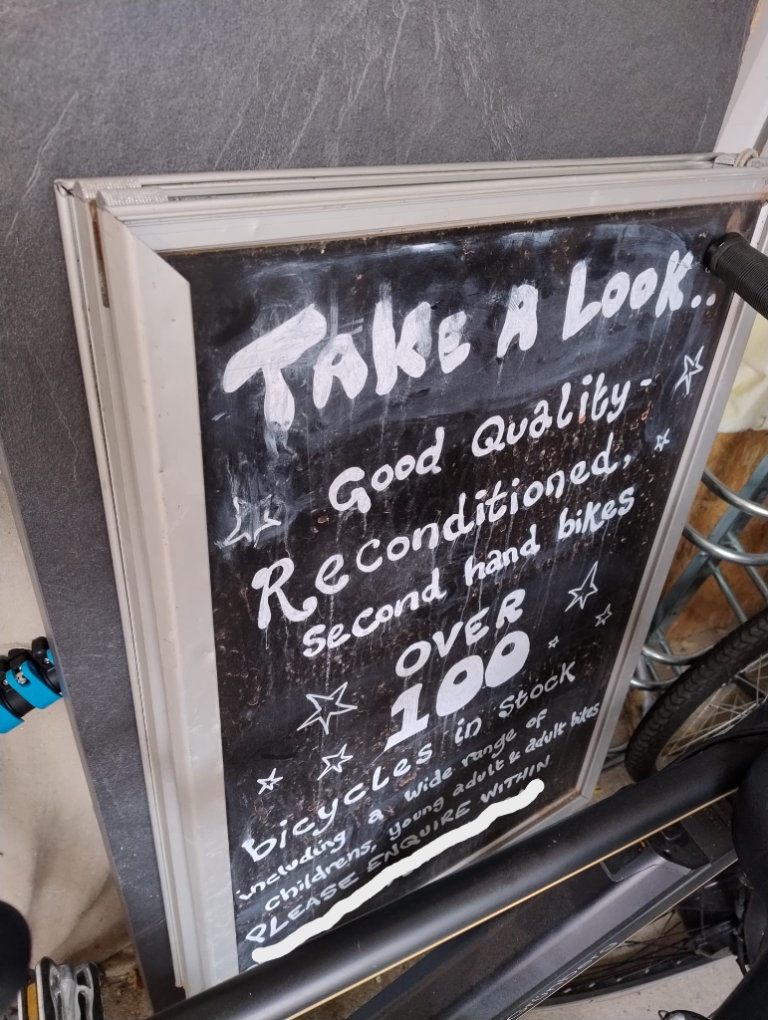 TAKE A LOOK..
Good Quality-
Reconditioned,
second hand bikes
OVER
100
bicycles in Stock
including a wide range of
childrens, young adult & adult bikes
PLEASE ENQUIRE WITHIN